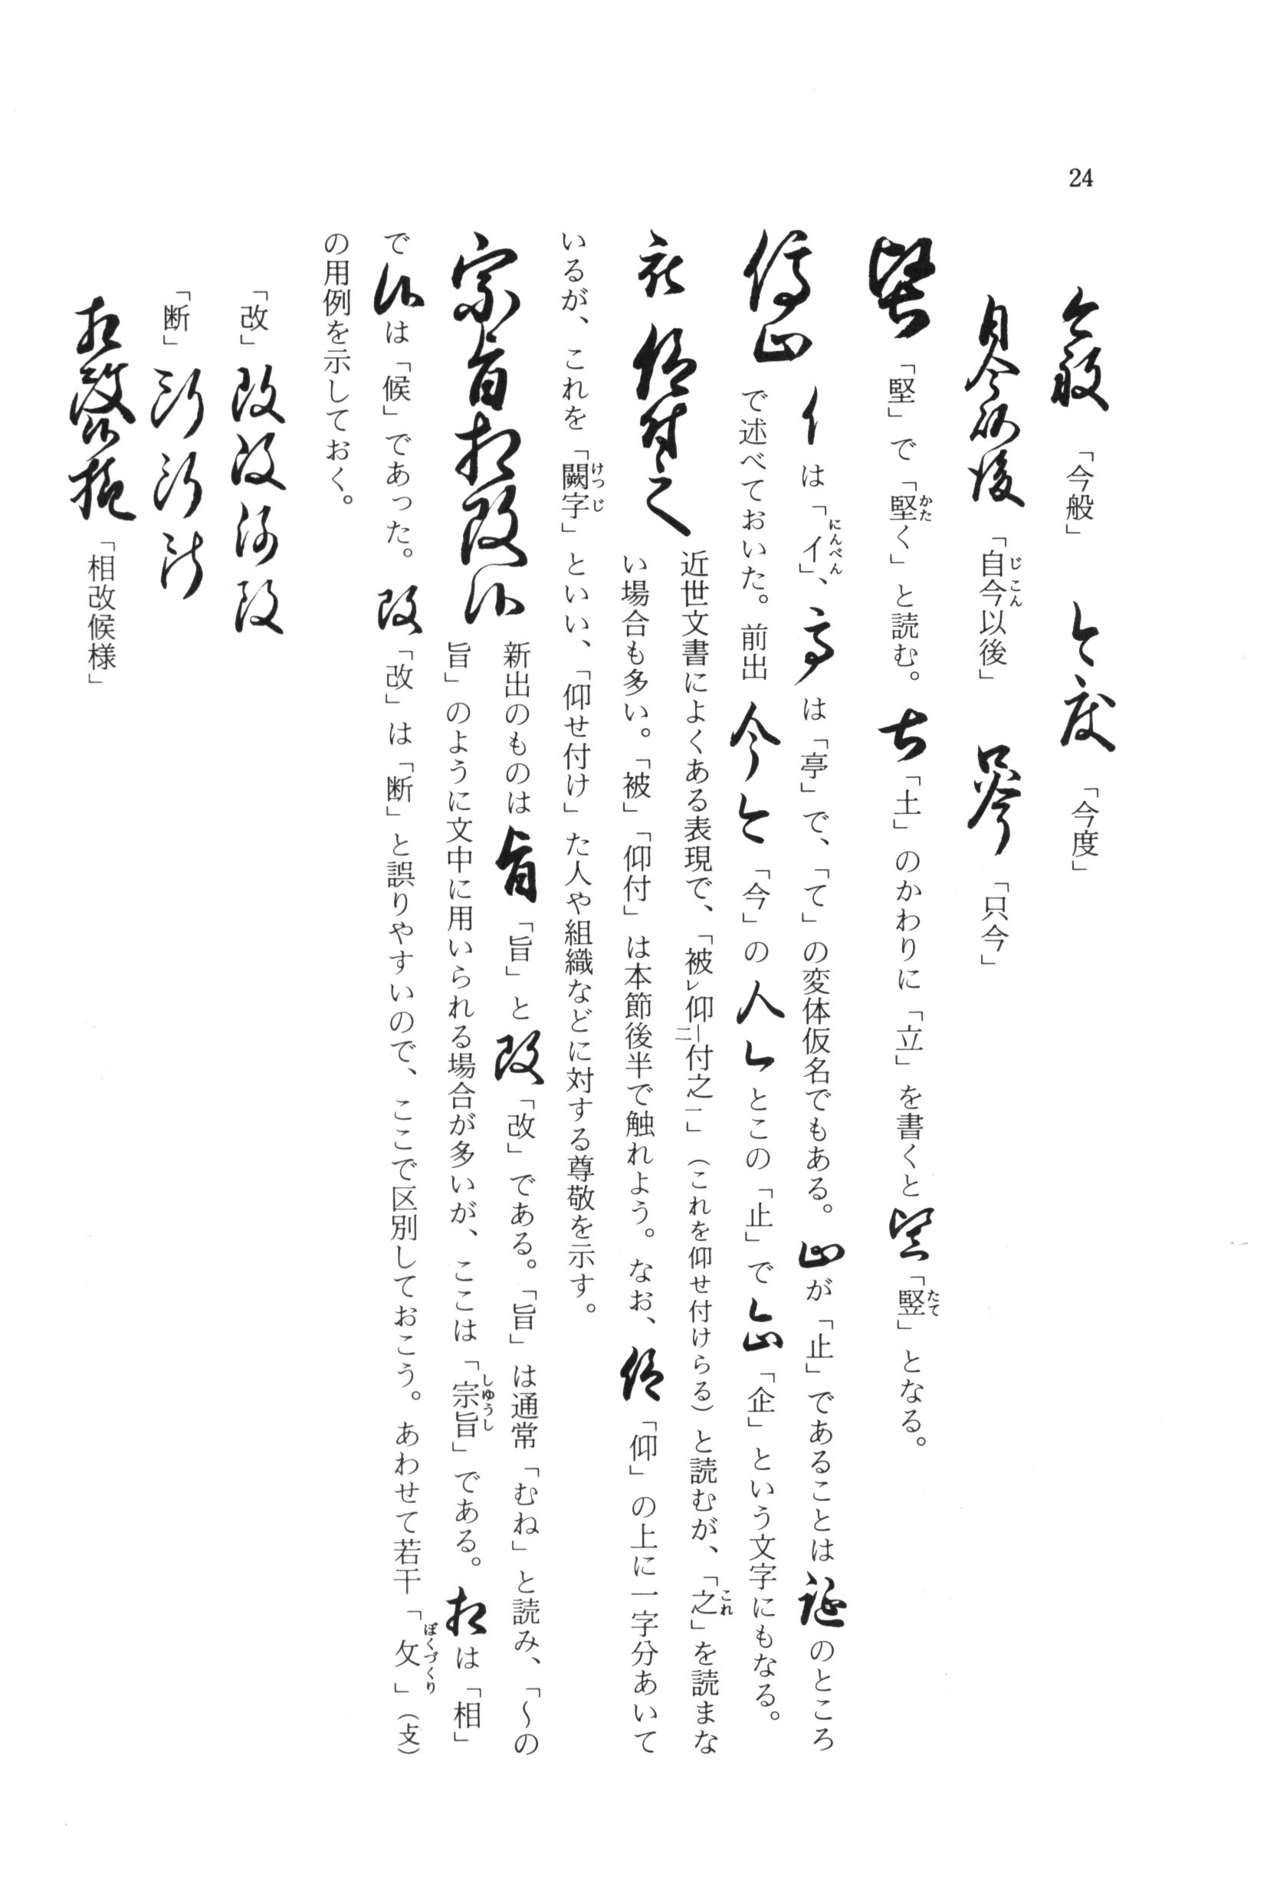 24
今般「今般」 今度「今度」
自今以後「自今以後」 只今「只今」
堅「堅」で「堅く」と読む。土「土」のかわりに「立」を書くと竪「竪」となる。
停止 亻は「亻」、亭は「亭」で、「て」の変体仮名でもある。止が「止」であることは証のところ
で述べておいた。前出今今「今」の人𠆢とこの「止」で企「企」という文字にもなる。
被 仰付之 近世文書によくある表現で、「被㆑仰㆓付之㆒」(これを仰せ付けらる)と読むが、「之」を読まな
い場合も多い。「被」「仰付」は本節後半で触れよう。なお、仰「仰」の上に一字分あいて
いるが、これを「闕字」といい、「仰せ付け」た人や組織などに対する尊敬を示す。
宗旨相改候 新出のものは旨「旨」と改「改」である。「旨」は通常「むね」と読み、「〜の
旨」のように文中に用いられる場合が多いが、ここは「宗旨」である。相は「相」
で候は「候」であった。改「改」は「断」と誤りやすいので、ここで区別しておこう。あわせて若干「攵」(攴)
の用例を示しておく。
「改」改改改改
「断」断断断
相改候様「相改候様」